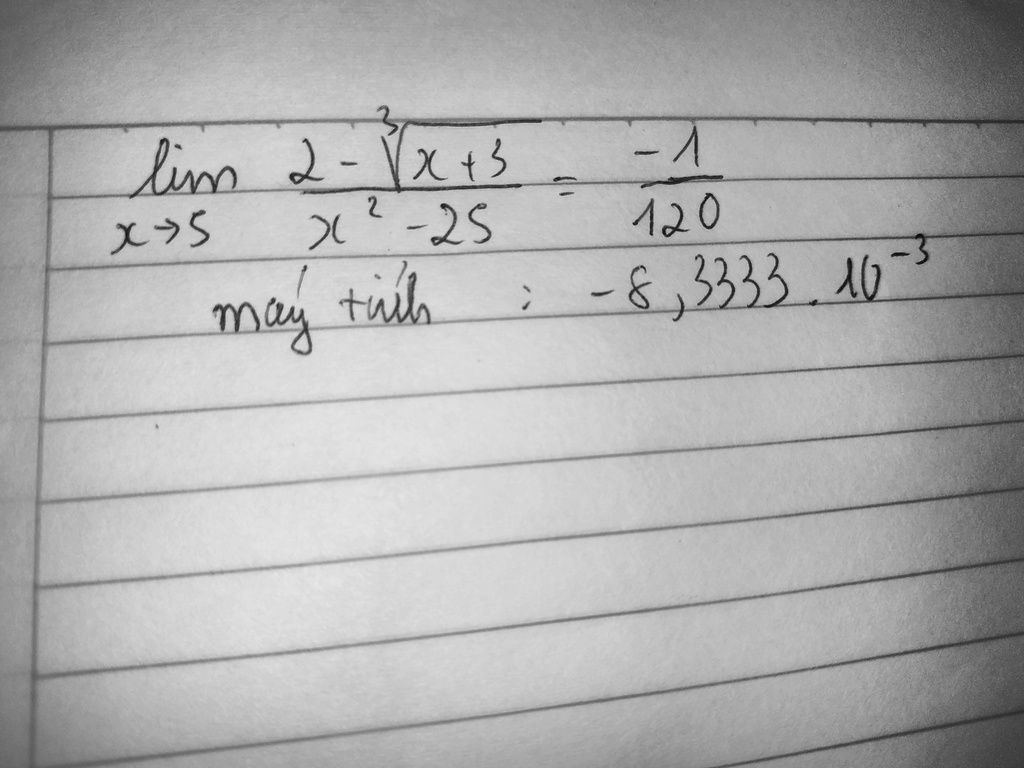 lim x→5 (2 - ∛(x+3)) / (x² - 25) = -1/120
máy tính : -8,3333 . 10⁻³